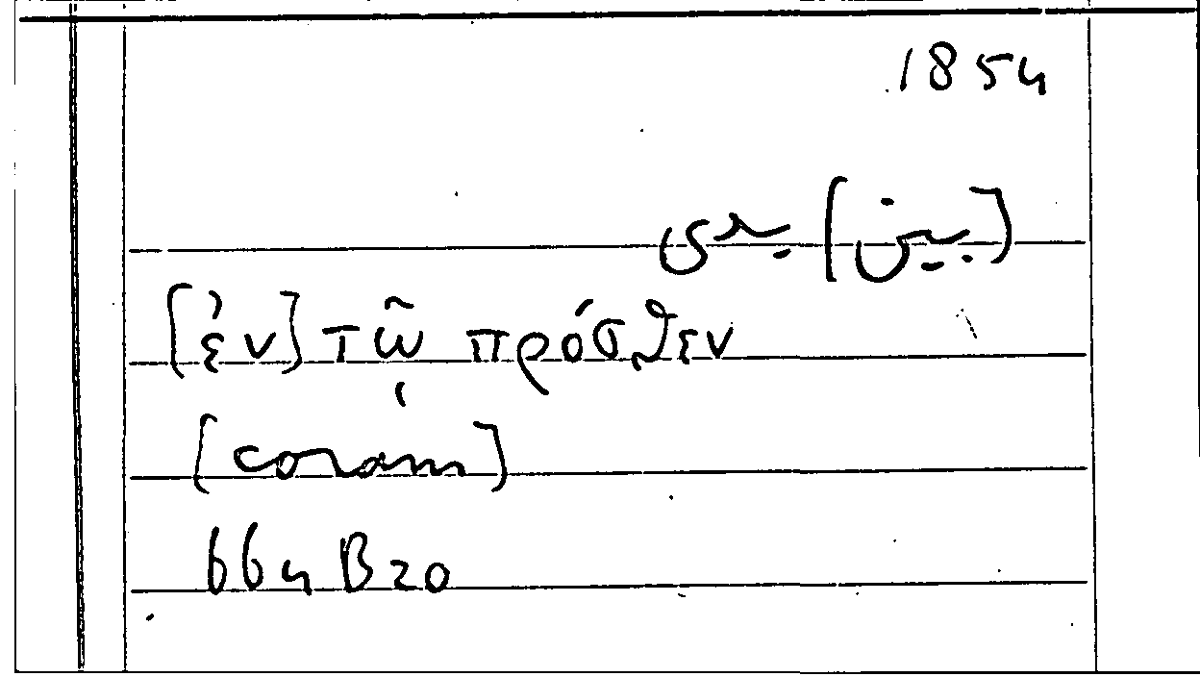 1854
[بين] يدى
[ἐν] τῷ πρόσθεν
[coram]
664 B 20